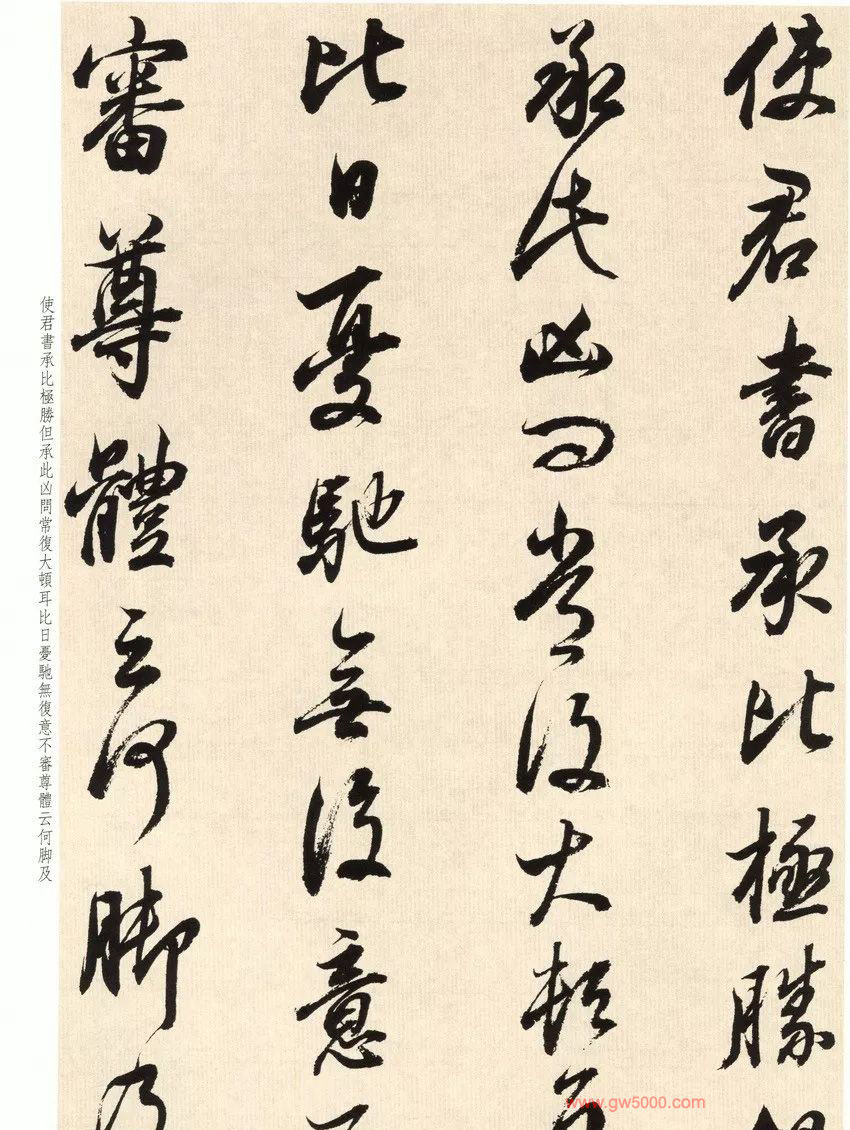 使君書承比極勝但
承此凶問常復大頓耳
比日憂馳無復意不
審尊體云何脚及
使君書承比極勝但承此凶問常復大頓耳比日憂馳無復意不審尊體云何脚及
www.gw5000.com